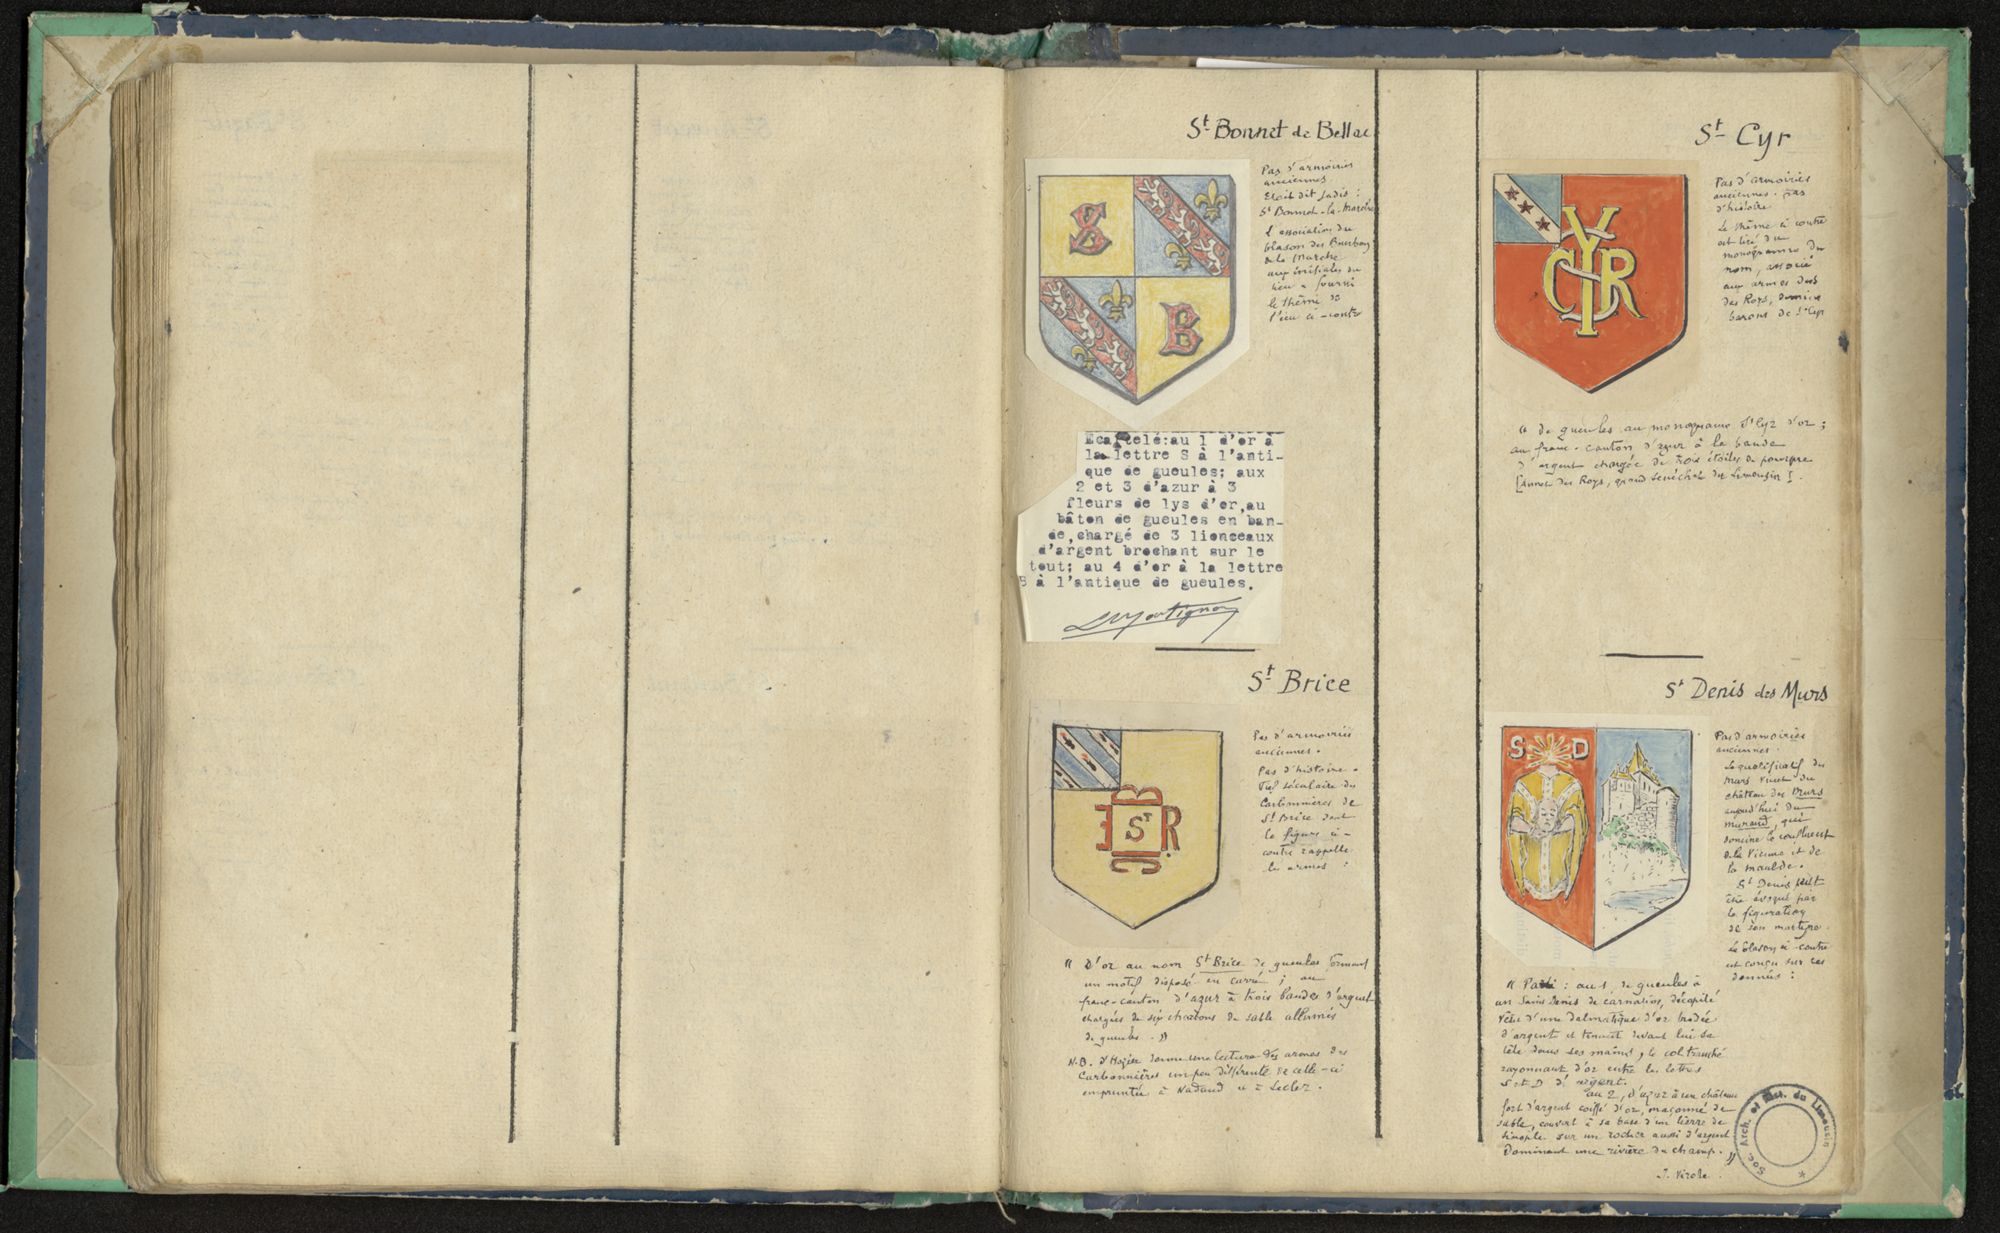 St Bonnet de Bellac
Pas d'armoiries
anciennes.
Etait dit jadis :
St Bonnet-la-Marche
L'association du
blason des Bourbons
de la Marche
aux initiales du
lieu a fourni
le thème de
l'écu ci-contre
S
B
B
Ecartelé:au 1 d'or à
la lettre S à l'anti-
que de gueules; aux
2 et 3 d'azur à 3
fleurs de lys d'or,au
bâton de gueules en ban-
de,chargé de 3 lionceaux
d'argent brochant sur le
tout; au 4 d'or à la lettre
B à l'antique de gueules.
St Brice
Pas d'armoiries
anciennes.
Pas d'histoire.
Fief séculaire des
Carbonnières de
St Brice dont
la figure ci-
contre rappelle
les armes :
ST
B
R
"D'or au nom St Brice de gueules formant
un motif disposé en carré ; au
franc-canton d'azur à trois bandes d'argent
chargées de six charbons de sable allumés
de gueules."
N.B. d'Hozier donne une lecture des armes des
Carbonnières un peu différente de celle-ci
empruntée à Nadaud et à Lecler.
St Cyr
Pas d'armoiries
anciennes. pas
d'histoire
Le thème ci contre
est tiré du
monogramme du
nom, associé
aux armes des
des Roys, derniers
barons de St Cyr
CYR
"de gueules au monogramme St Cyr d'or ;
au franc-canton d'azur à la bande
d'argent chargée de trois étoiles de pourpre
[Annet des Roys, grand sénéchal du Limousin].
St Denis des Murs
Pas d'armoiries
anciennes.
Le qualificatif des
Murs vient du
château des Murs
aujourd'hui du
Muraud, qui
domine le confluent
de la Vienne et de
la Maulde.
St Denis peut
être évoqué par
la figuration
de son martyre.
Le blason ci-contre
est conçu sur ces
données :
S D
"Parti : au 1, de gueules à
un Saint Denis de carnation, décapité
vêtu d'une dalmatique d'or brodée
d'argent et tenant devant lui sa
tête dans ses mains, le col tranché
rayonnant d'or entre les lettres
S et D d'argent.
au 2, d'azur à un château
fort d'argent coiffé d'or, maçonné de
sable, couvert à sa base d'un lierre de
sinople sur un rocher aussi d'argent
dominant une rivière du champ."
J. Virole.
Soc. Arch. et Hist. du Limousin